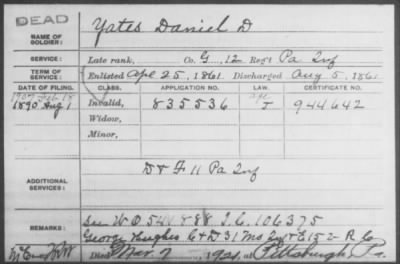 DEAD
NAME OF SOLDIER: Yates Daniel D
SERVICE: Late rank, Co. G, 12 Reg't Pa Inf
TERM OF SERVICE: Enlisted Apl 25, 1861 Discharged Aug 5, 1861
DATE OF FILING. CLASS. APPLICATION NO. LAW. CERTIFICATE NO.
1907 Feb 18 age
1890 Aug 1 Invalid, 835536 J 944642
Widow,
Minor,
ADDITIONAL SERVICES: D & F 11 Pa Inf
REMARKS: See W O 541888 I.C. 106375
George Hughes C & D 31 Ms Inf & E 152 R C
Died Mar. 7, 1921, at Pittsburgh, Pa.